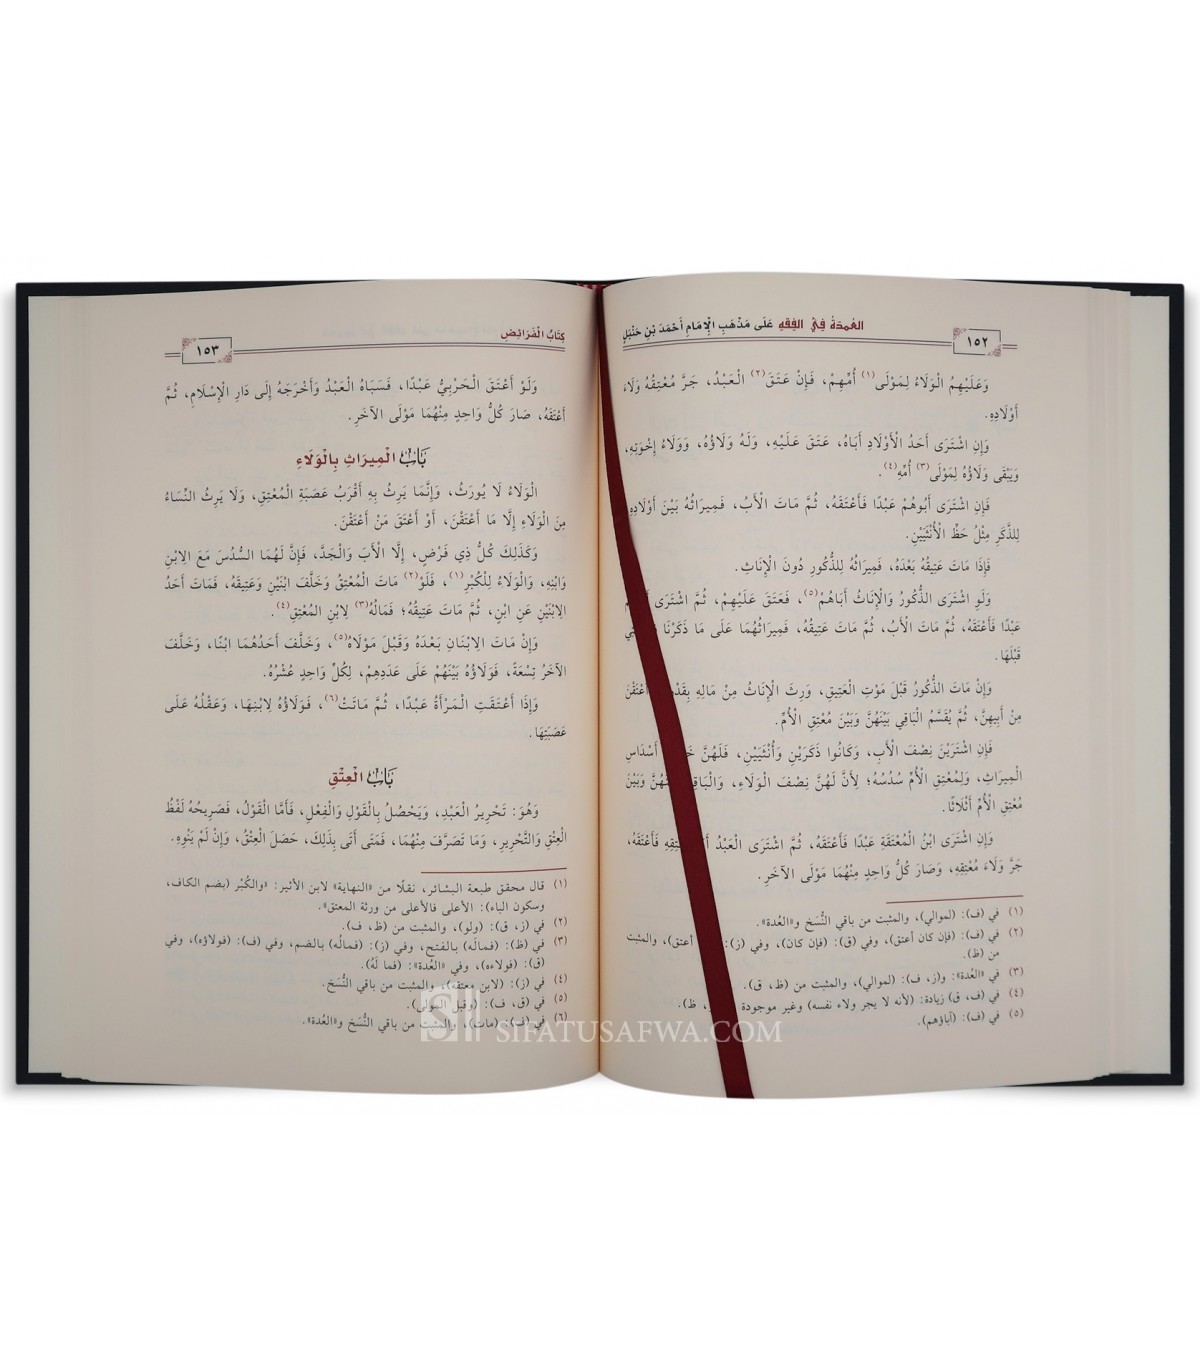 العُمدَة فِي الفِقهِ عَلَى مَذْهَبِ الإِمَامِ أَحْمَدَ بْنِ حَنْبَلٍ
١٥٢
وَعَلَيْهِمُ الْوَلَاءُ لِمَوْلَى(١) أُمِّهِمْ، فَإِنْ عَتَقَ(٢) الْعَبْدُ، جَرَّ مُعْتِقُهُ وَلَاءَ
أَوْلَادِهِ.
وَإِنِ اشْتَرَى أَحَدُ الْأَوْلَادِ أَبَاهُ، عَتَقَ عَلَيْهِ، وَلَهُ وَلَاؤُهُ، وَوَلَاءُ إِخْوَتِهِ،
وَيَبْقَى وَلَاؤُهُ لِمَوْلَى(٣) أُمِّهِ(٤).
فَإِنِ اشْتَرَى أَبُوهُمْ عَبْدًا فَأَعْتَقَهُ، ثُمَّ مَاتَ الْأَبُ، فَمِيرَاثُهُ بَيْنَ أَوْلَادِهِ
لِلذَّكَرِ مِثْلُ حَظِّ الْأُنْثَيَيْنِ.
فَإِذَا مَاتَ عَتِيقُهُ بَعْدَهُ، فَمِيرَاثُهُ لِلذُّكُورِ دُونَ الْإِنَاثِ.
وَلَوِ اشْتَرَى الذُّكُورُ وَالْإِنَاثُ أَبَاهُمْ(٥)، فَعَتَقَ عَلَيْهِمْ، ثُمَّ اشْتَرَى
عَبْدًا فَأَعْتَقَهُ، ثُمَّ مَاتَ الْأَبُ، ثُمَّ مَاتَ عَتِيقُهُ، فَمِيرَاثُهُمَا عَلَى مَا ذَكَرْنَا
قَبْلَهَا.
وَإِنْ مَاتَ الذُّكُورُ قَبْلَ مَوْتِ الْعَتِيقِ، وَرِثَ الْإِنَاثُ مِنْ مَالِهِ بِقَدْرِ أَعْتَقْنَ
مِنْ أَبِيهِنَّ، ثُمَّ يُقَسَّمُ الْبَاقِي بَيْنَهُنَّ وَبَيْنَ مُعْتِقِ الْأُمِّ.
فَإِنِ اشْتَرَيْنَ نِصْفَ الْأَبِ، وَكَانُوا ذَكَرَيْنِ وَأُنْثَيَيْنِ، فَلَهُنَّ أَسْدَاسِ
الْمِيرَاثِ، وَلِمُعْتِقِ الْأُمِّ سُدُسُهُ؛ لِأَنَّ لَهُنَّ نِصْفَ الْوَلَاءِ، وَالْبَاقِي وَبَيْنَ
مُعْتِقِ الْأُمِّ أَثْلَاثًا.
وَإِنِ اشْتَرَى ابْنُ الْمُعْتَقَةِ عَبْدًا فَأَعْتَقَهُ، ثُمَّ اشْتَرَى الْعَبْدُ فَأَعْتَقَهُ،
جَرَّ وَلَاءَ مُعْتِقِهِ، وَصَارَ كُلُّ وَاحِدٍ مِنْهُمَا مَوْلَى الآخَرِ.
(١) في (ف): (لموالي)، والمثبت من باقي النُّسَخ و«العدة».
(٢) في (ف): (فإن كان أعتق)، وفي (ق): (فإن كان)، وفي (ز): أعتق)، والمثبت
من (ظ).
(٣) في «العدة»: و(ز، ف): (لموالي)، والمثبت من (ظ، ق).
(٤) في (ف، ق) زيادة: (لأنه لا يجر ولاء نفسه) وغير موجودة ظ).
(٥) في (ف): (آباؤهم).
كِتَابُ الْفَرَائِضِ
١٥٣
وَلَوْ أَعْتَقَ الْحَرْبِيُّ عَبْدًا، فَسَبَاهُ الْعَبْدُ وَأَخْرَجَهُ إِلَى دَارِ الْإِسْلَامِ، ثُمَّ
أَعْتَقَهُ، صَارَ كُلُّ وَاحِدٍ مِنْهُمَا مَوْلَى الآخَرِ.
بَابُ الْمِيرَاثِ بِالْوَلَاءِ
الْوَلَاءُ لَا يُورَثُ، وَإِنَّمَا يَرِثُ بِهِ أَقْرَبُ عَصَبَةِ الْمُعْتِقِ، وَلَا يَرِثُ النِّسَاءُ
مِنَ الْوَلَاءِ إِلَّا مَا أَعْتَقْنَ، أَوْ أَعْتَقَ مَنْ أَعْتَقْنَ.
وَكَذَلِكَ كُلُّ ذِي فَرْضٍ، إِلَّا الْأَبَ وَالْجَدَّ، فَإِنَّ لَهُمَا السُّدُسَ مَعَ الِابْنِ
وَابْنِهِ، وَالْوَلَاءُ لِلْكُبْرِ(١)، فَلَوْ(٢) مَاتَ الْمُعْتِقُ وَخَلَّفَ ابْنَيْنِ وَعَتِيقَهُ، فَمَاتَ أَحَدُ
الِابْنَيْنِ عَنِ ابْنٍ، ثُمَّ مَاتَ عَتِيقُهُ؛ فَمَالُهُ(٣) لِابْنِ المُعْتِقِ(٤).
وَإِنْ مَاتَ الِابْنَانِ بَعْدَهُ وَقَبْلَ مَوْلَاهُ(٥)، وَخَلَّفَ أَحَدُهُمَا ابْنًا، وَخَلَّفَ
الآخَرُ تِسْعَةً، فَوَلَاؤُهُ بَيْنَهُمْ عَلَى عَدَدِهِمْ، لِكُلِّ وَاحِدٍ عُشْرُهُ.
وَإِذَا أَعْتَقَتِ الْمَرْأَةُ عَبْدًا، ثُمَّ مَاتَتْ(٦)، فَوَلَاؤُهُ لِابْنِهَا، وَعَقْلُهُ عَلَى
عَصَبَتِهَا.
بَابُ الْعِتْقِ
وَهُوَ: تَحْرِيرُ الْعَبْدِ، وَيَحْصُلُ بِالْقَوْلِ وَالْفِعْلِ، فَأَمَّا الْقَوْلُ، فَصَرِيحُهُ لَفْظُ
الْعِتْقِ وَالتَّحْرِيرِ، وَمَا تَصَرَّفَ مِنْهُمَا، فَمَتَى أَتَى بِذَلِكَ، حَصَلَ الْعِتْقُ، وَإِنْ لَمْ يَنْوِهِ.
(١) قال محقق طبعة البشائر، نقلًا من «النهاية» لابن الأثير: «والكُبْر (بضم الكاف،
وسكون الباء): الأعلى فالأعلى من ورثة المعتق».
(٢) في (ز، ق): (ولو)، والمثبت من (ظ، ف).
(٣) في (ظ): (فمالَه) بالفتح، وفي (ز): (فمالُه) بالضم، وفي (ف): (فولاؤه)، وفي
(ق): (فولاءه)، وفي «العُدة»: (فما لَهُ).
(٤) في (ز): (لابن معتقه)، والمثبت من باقي النُّسَخ.
(٥) في (ق، ف): (وقبل المولى).
(٦) في (ف): (مات)، والمثبت من باقي النُّسَخ و«العدة».
SIFATUSAFWA.COM